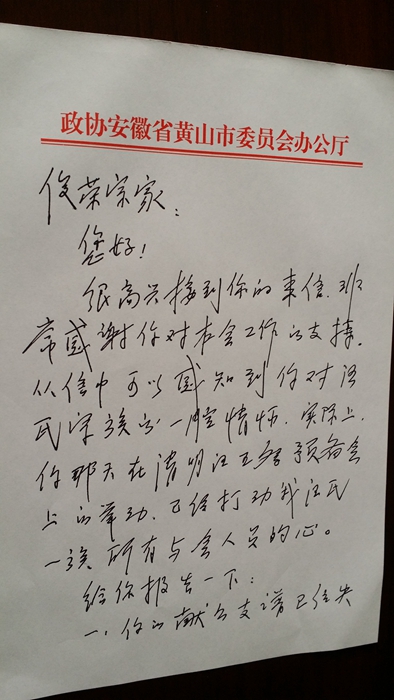 政协安徽省黄山市委员会办公厅
俊荣宗家：
您好！
很高兴接到你的来信，非
常感谢你对本会工作的支持。
从信中可以感知到你对汪
氏宗族的一腔情怀，实际上，
你那天在清明汪王祭预备会
上的举动，已经打动我汪氏
一族所有与会人员的心。
给你报告一下：
一、你的献公支谱已经失